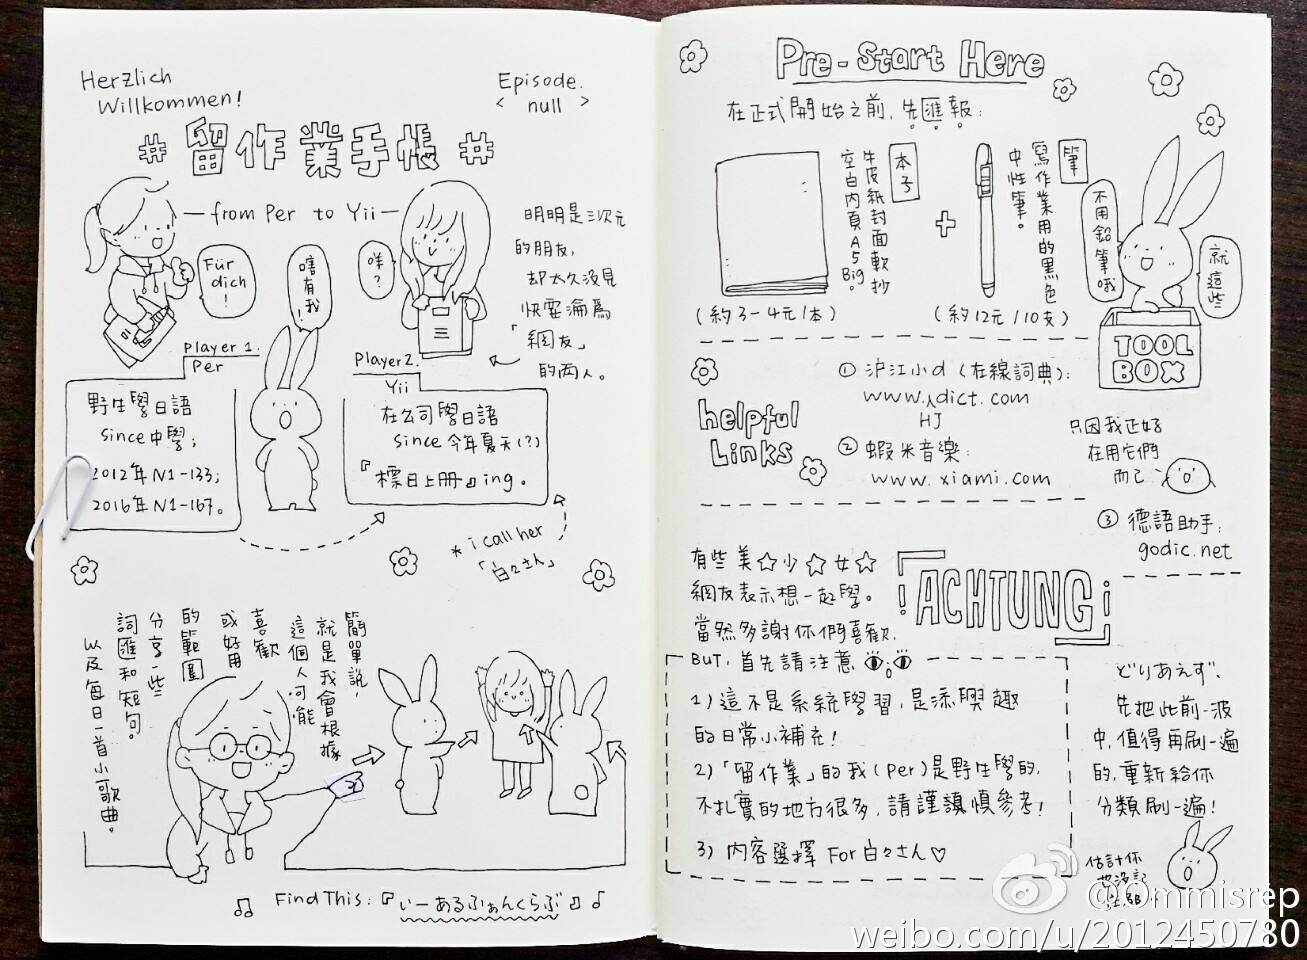 Herzlich
Willkommen!
Episode.
< null >
# 留作業手帳 #
— from Per to Yii —
Für
dich
!
嗐有我!
咩
?
明明是三次元
的朋友,
却太久没見
快要淪爲
「網友」
的两人。
Player 1.
Per
野生學日語
since中學;
2012年N1-133;
2016年N1-167。
Player2.
Yii
在公司學日語
since 今年夏天(?)
『標日上册』ing。
* i call her
「白々さん」
簡單說,
就是我會根據
這個人可能
喜歡
或好用
的範圍
分享一些
詞匯和短句。
以及每日一首小歌曲。
♫ Find This:『いーあるふぁんくらぶ』♪
Pre-Start Here
在正式開始之前,先匯報:
本子
牛皮紙封面軟抄
空白内頁A5Big。
(約3-4元/本)
+
筆
寫作業用的黑色
中性筆。
(約12元/10支)
不用鉛
筆哦
就這些
TOOL
BOX
helpful
Links
① 沪江小d(在線詞典):
www.dict.com
HJ
② 蝦米音樂:
www.xiami.com
只因我正好
在用它們
而已
③ 德語助手:
godic.net
有些美☆少☆女☆
網友表示想一起學。
當然多謝你們喜歡,
BUT,首先請注意
!ACHTUNG!
1)這不是系統學習,是添興趣
的日常小補充!
2)「留作業」的我(Per)是野生學的,
不扎實的地方很多,請謹慎參考!
3)内容選擇 For白々さん♡
どりあえず、
先把此前一波
中,值得再刷一遍
的,重新給你
分類刷一遍!
估計你
也没記
@Ommisrep
weibo.com/u/2012450780